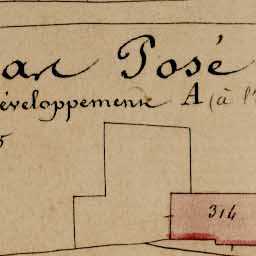 ar Posé
éveloppement A (à l'
5
314